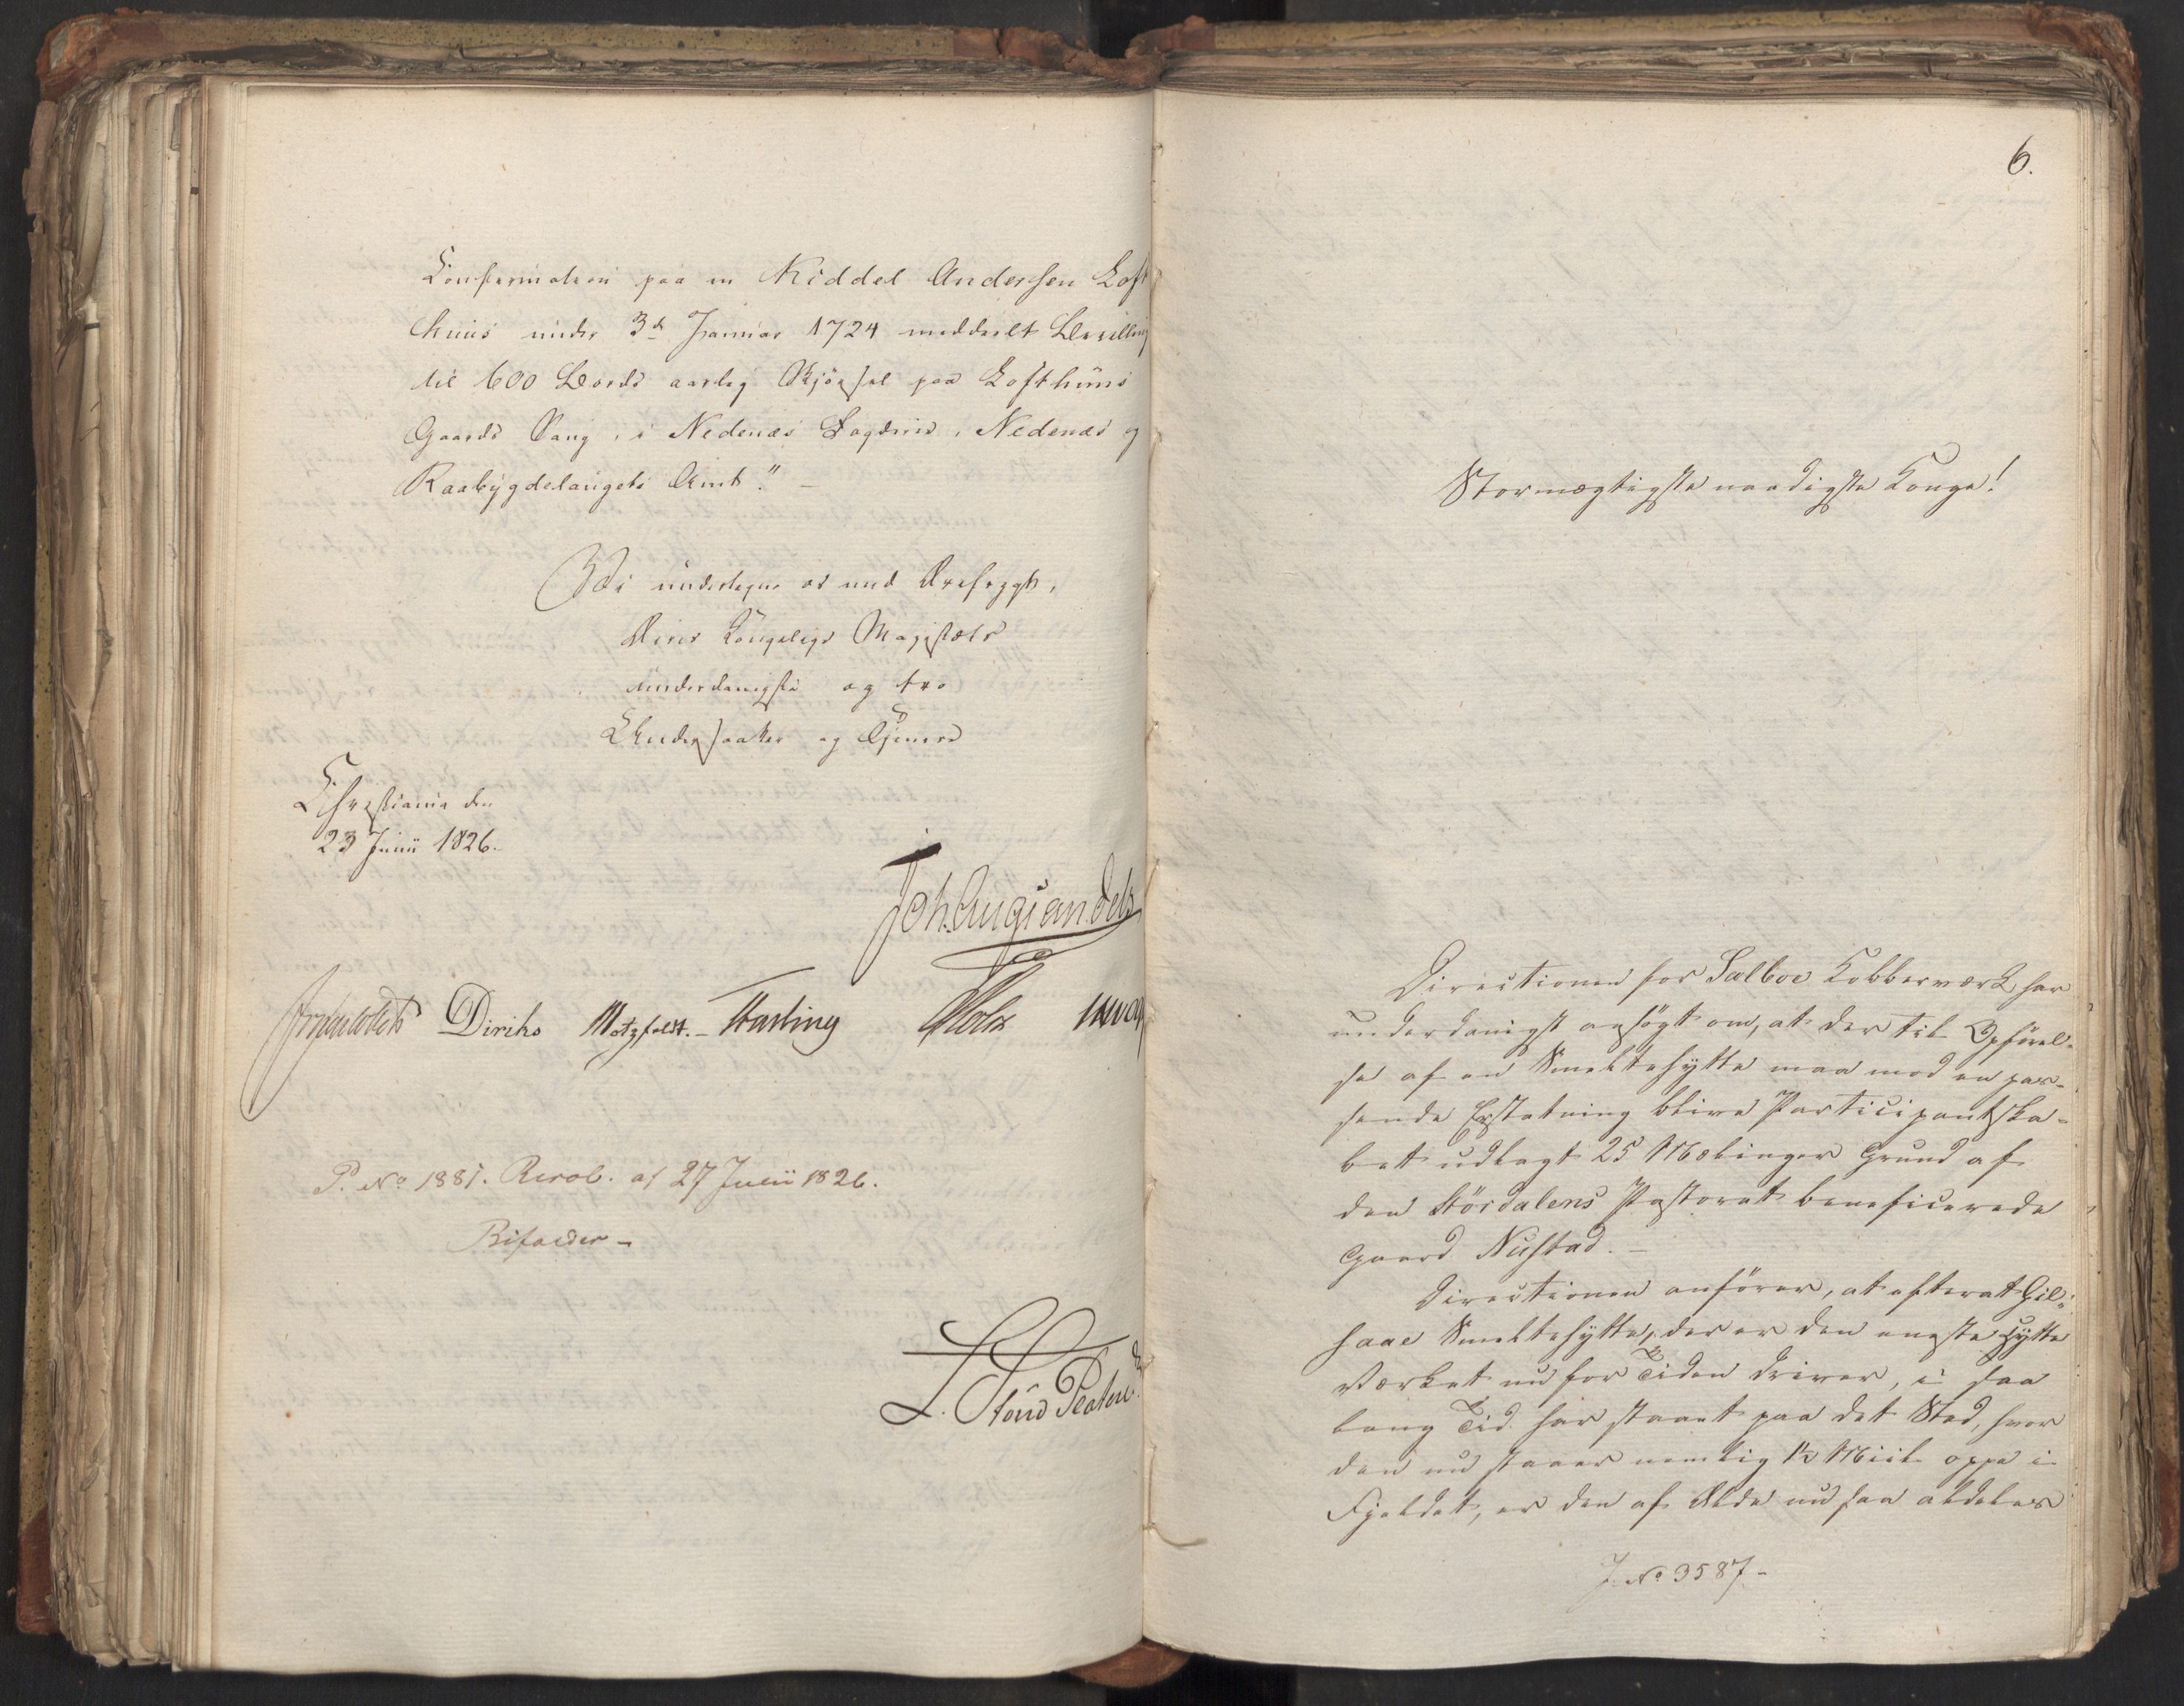 Confirmation paa en Niddel Andersen Loft
huus under 3d Januar 1724 meddeelt Bevilling
til 600 Bords aarlig Skjørsel paa Lofthuus
Gaards Saug, i Nedenæs Fogderie, Nedenæs og
Raabygdelaugets Amt." –
Vi undertegne os med Ærefrygt,
Deres Kongelige Majestæts
underdanigste og tro
Undersaatter og Tjenere
Christiania den
23 Junii 1826.
Joh. Aug: Sandels
Diriks Motzfeldt. – Fasting Holst
P. No 1881. Resol. af 27 Junii 1826.
Bifaldes –
6.
Stormægtigste naadigste Konge!
Directionen for Selboe Kobberværk har
underdanigst ansøgt om, at der til Opførel-
se af en Smeltehytte maa mod en pas-
sende Erstatning blive Participantska-
bet udlagt 25 Mælinger Grund af
den Stördalens Pastorat beneficerede
Gaard Nustad. –
Directionen anfører, at efterat Gil-
saae Smeltehytte, der er den eneste Hytte
Værket nu for Tiden driver, i saa
lang Tid har staaet paa det Sted, hvor
den nu staaer nemlig 1½ Miil oppe i
Fjeldet, er den af Ælde nu saa aldeles
J. No 3587 –